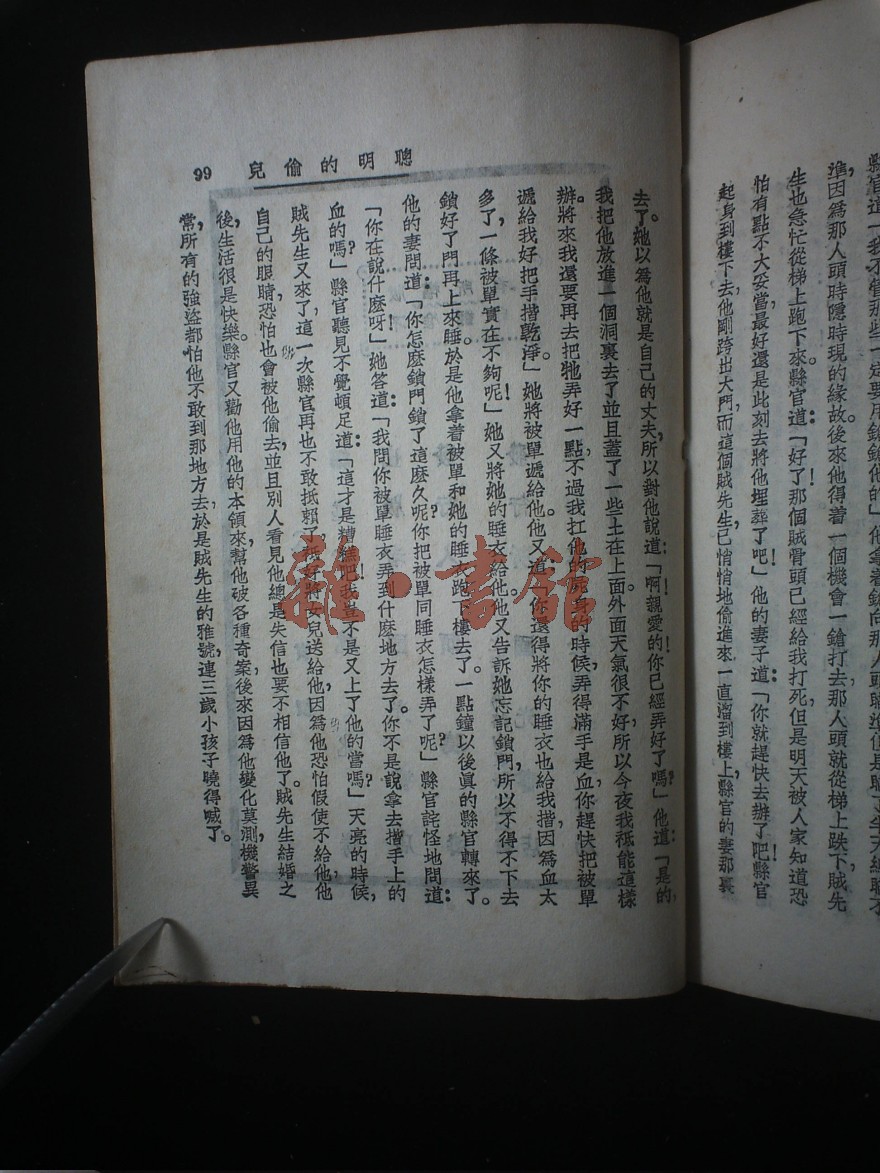 縣官道「我不管那些一定要用鎗鎗他的」他拿着鎗向那人頭瞄準
準,因爲那人頭時隱時現的緣故。後來他得着一個機會,一鎗打去,那人頭就從梯上跌下,賊先
生也急忙從梯上跑下來。縣官道:「好了!那個賊骨頭已經給我打死,但是明天被人家知道,恐
怕有點不大妥當,最好還是此刻去將他埋葬了吧!」他的妻子道:「你就趕快去辦了吧!」縣官
起身到樓下去,他剛跨出大門,而這個賊先生,已悄悄地偷進來,一直溜到樓上,縣官的妻那裏
聰明的偷兒
99
去了。她以爲他就是自己的丈夫,所以對他說道:「啊!親愛的!你已經弄好了嗎?」他道:「是的,
我把他放進一個洞裏去了,並且蓋了一些土在上面。外面天氣很不好,所以今夜我祇能這樣
辦。將來我還要再去把牠弄好一點。不過我扛他的屍身的時候,弄得滿手是血,你趕快把被單
遞給我,好把手揩乾淨。」她將被單遞給他。他又道:「你還得將你的睡衣也給我揩,因爲血太
多了,一條被單實在不夠呢!」她又將她的睡衣給他。他又告訴她忘記鎖門,所以不得不下去
鎖好了門再上來睡。於是他拿着被單和她的睡衣,跑下樓去了。一點鐘以後,眞的縣官轉來了。
他的妻問道:「你怎麽鎖門鎖了這麽久呢?你把被單同睡衣怎樣弄了呢?」縣官詫怪地問道:
「你在說什麽呀!」她答道:「我問你被單睡衣弄到什麽地方去了。你不是說拿去揩手上的
血的嗎?」縣官聽見不覺頓足道:「這才是糟糕吧!我豈不是又上了他的當嗎?」天亮的時候,
賊先生又來了,這一次縣官再也不敢抵賴了,祇好將女兒送給他,因爲他恐怕假使不給他,他
自己的眼睛,恐怕也會被他偷去,並且別人看見他總是失信,也要不相信他了。賊先生結婚之
後,生活很是快樂。縣官又勸他用他的本領,來幫他破各種奇案,後來因爲他變化莫測,機警異
常,所有的強盜都怕他,不敢到那地方去,於是賊先生的雅號,連三歲小孩子曉得喊了。
雜·書館